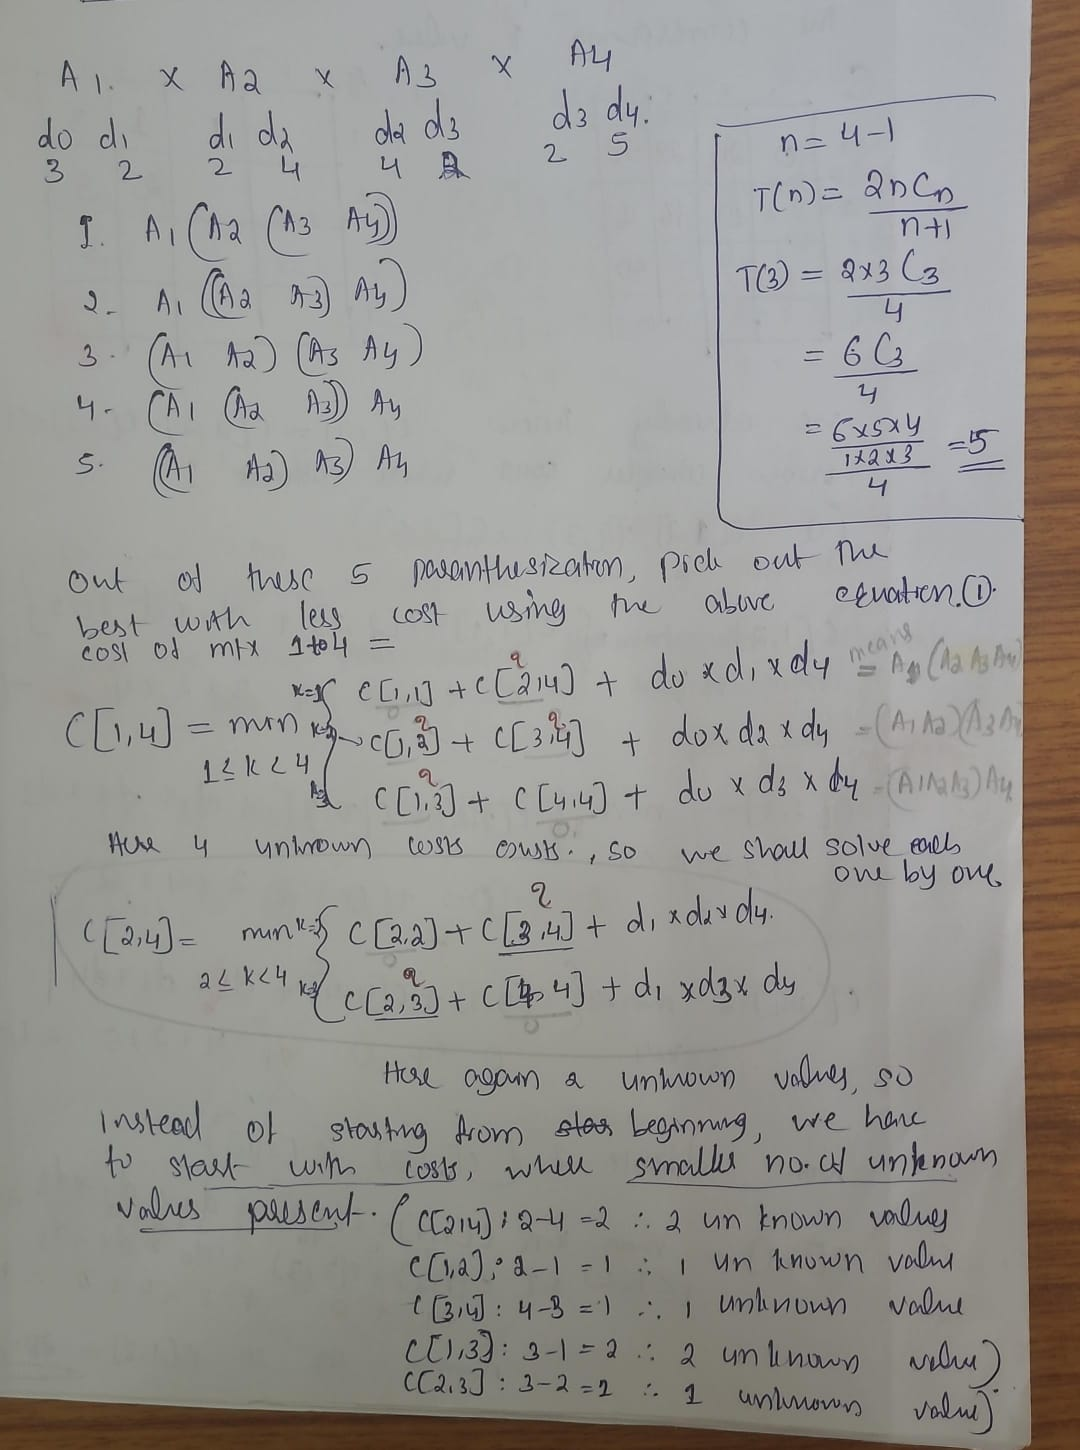 A1. x A2 x A3 x A4
do d1 d1 d2 d2 d3 d3 d4.
3 2 2 4 4 2 2 5
1. A1 (A2 (A3 A4))
2- A1 ((A2 A3) A4)
3. (A1 A2) (A3 A4)
4- (A1 (A2 A3)) A4
5. ((A1 A2) A3) A4
n = 4-1
T(n) = 2nCn
n+1
T(3) = 2x3 C3
4
= 6C3
4
= 6x5x4
1x2x3
4
= 5
Out of these 5 paranthesization, pick out the
best with less cost using the above equation.①.
cost of mtx 1 to 4 =
C[1,4] = min
1≤k<4
k=1 C[1,1] + C[2,4] + do x d1 x d4 means = A1 (A2 A3 A4)
k=2 C[1,2] + C[3,4] + do x d2 x d4 = (A1 A2)(A3 A4)
k=3 C[1,3] + C[4,4] + do x d3 x d4 = (A1A2A3) A4
Here 4 unknown costs exists., so we shall solve each
one by one
C[2,4] = min
2≤k<4
k=2 C[2,2] + C[3,4] + d1 x d2 x d4.
k=3 C[2,3] + C[4,4] + d1 x d3 x d4
Here again 2 unknown values, so
instead of starting from beginning, we have
to start with costs, where smaller no. of unknown
values present. (C[2,4] : 2-4 = 2 ∴ 2 un known values
C[1,2] : 2-1 = 1 ∴ 1 un known value
C[3,4] : 4-3 = 1 ∴ 1 unknown value
C[1,3] : 3-1 = 2 ∴ 2 unknown value)
C[2,3] : 3-2 = 1 ∴ 1 unknown value)